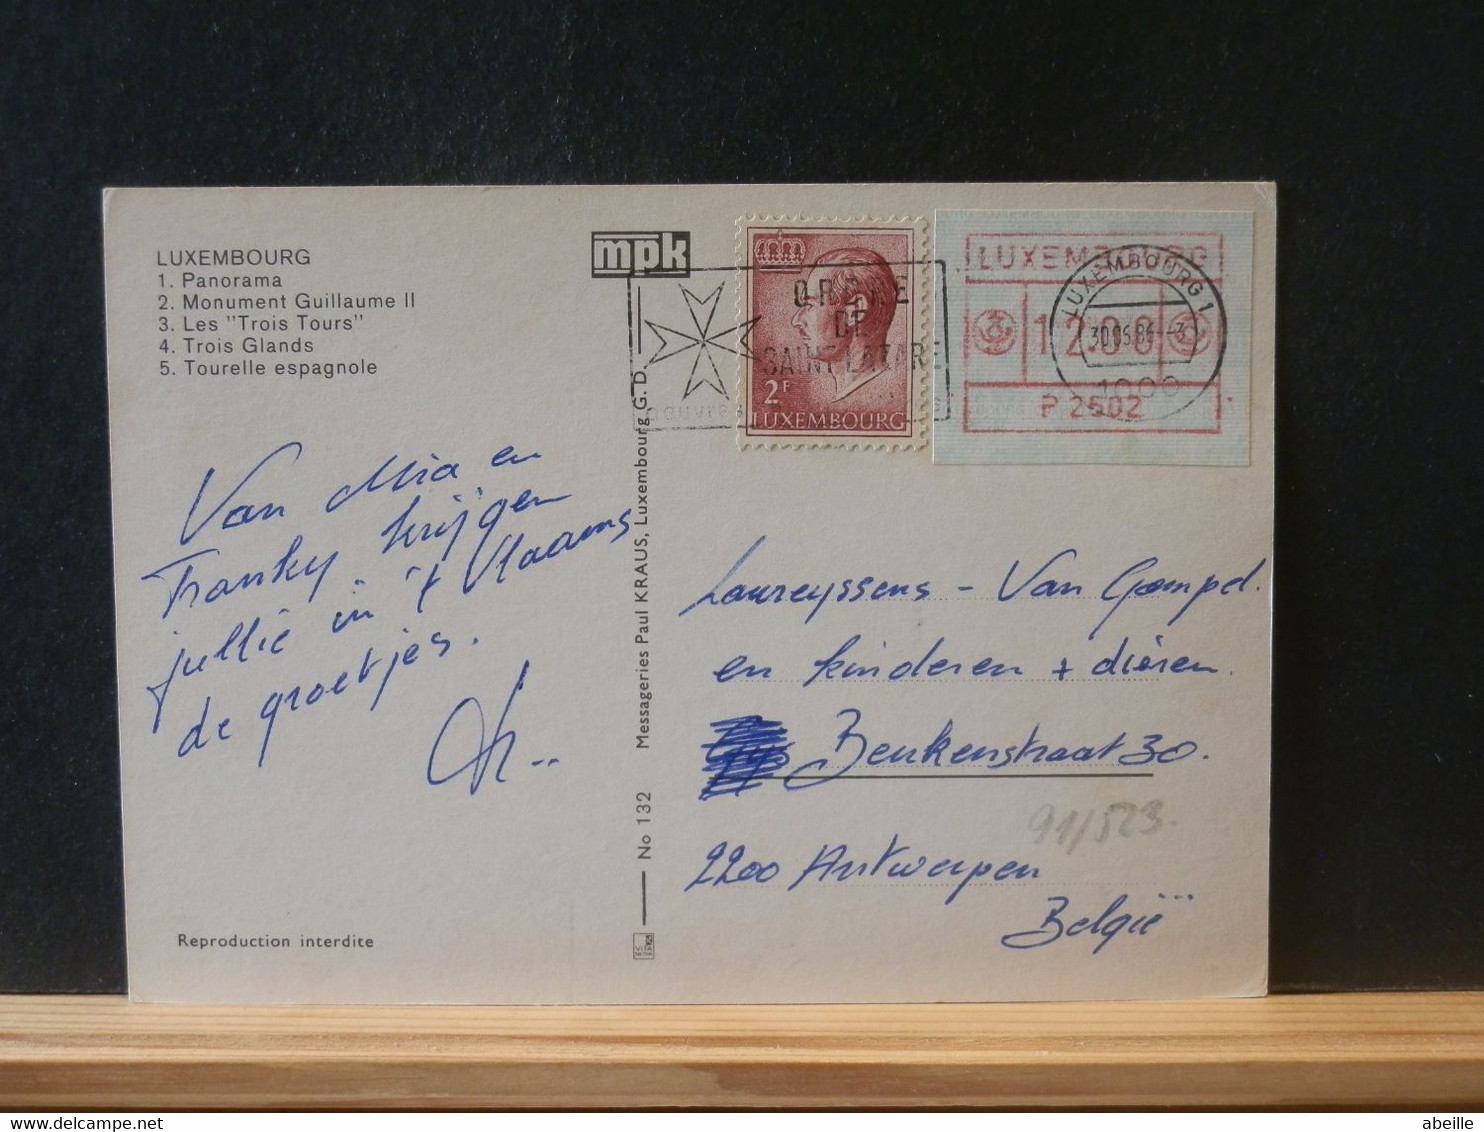 LUXEMBOURG
1. Panorama
2. Monument Guillaume II
3. Les "Trois Tours"
4. Trois Glands
5. Tourelle espagnole
mpk
ORDRE
DE
SAINT LAZARE
2F
LUXEMBOURG
LUXEMBOURG
12.00
P 2502
LUXEMBOURG 1
30.06.86--3
1000
Van Mia en
Franky krijgen
jullie in 't Vlaams
de groetjes.
No 132 Messageries Paul KRAUS, Luxembourg G. D.
Laureyssens - Van Gompel.
en kinderen + dieren.
Beukenstraat 30.
91/523.
2200 Antwerpen
België
Reproduction interdite
abeille